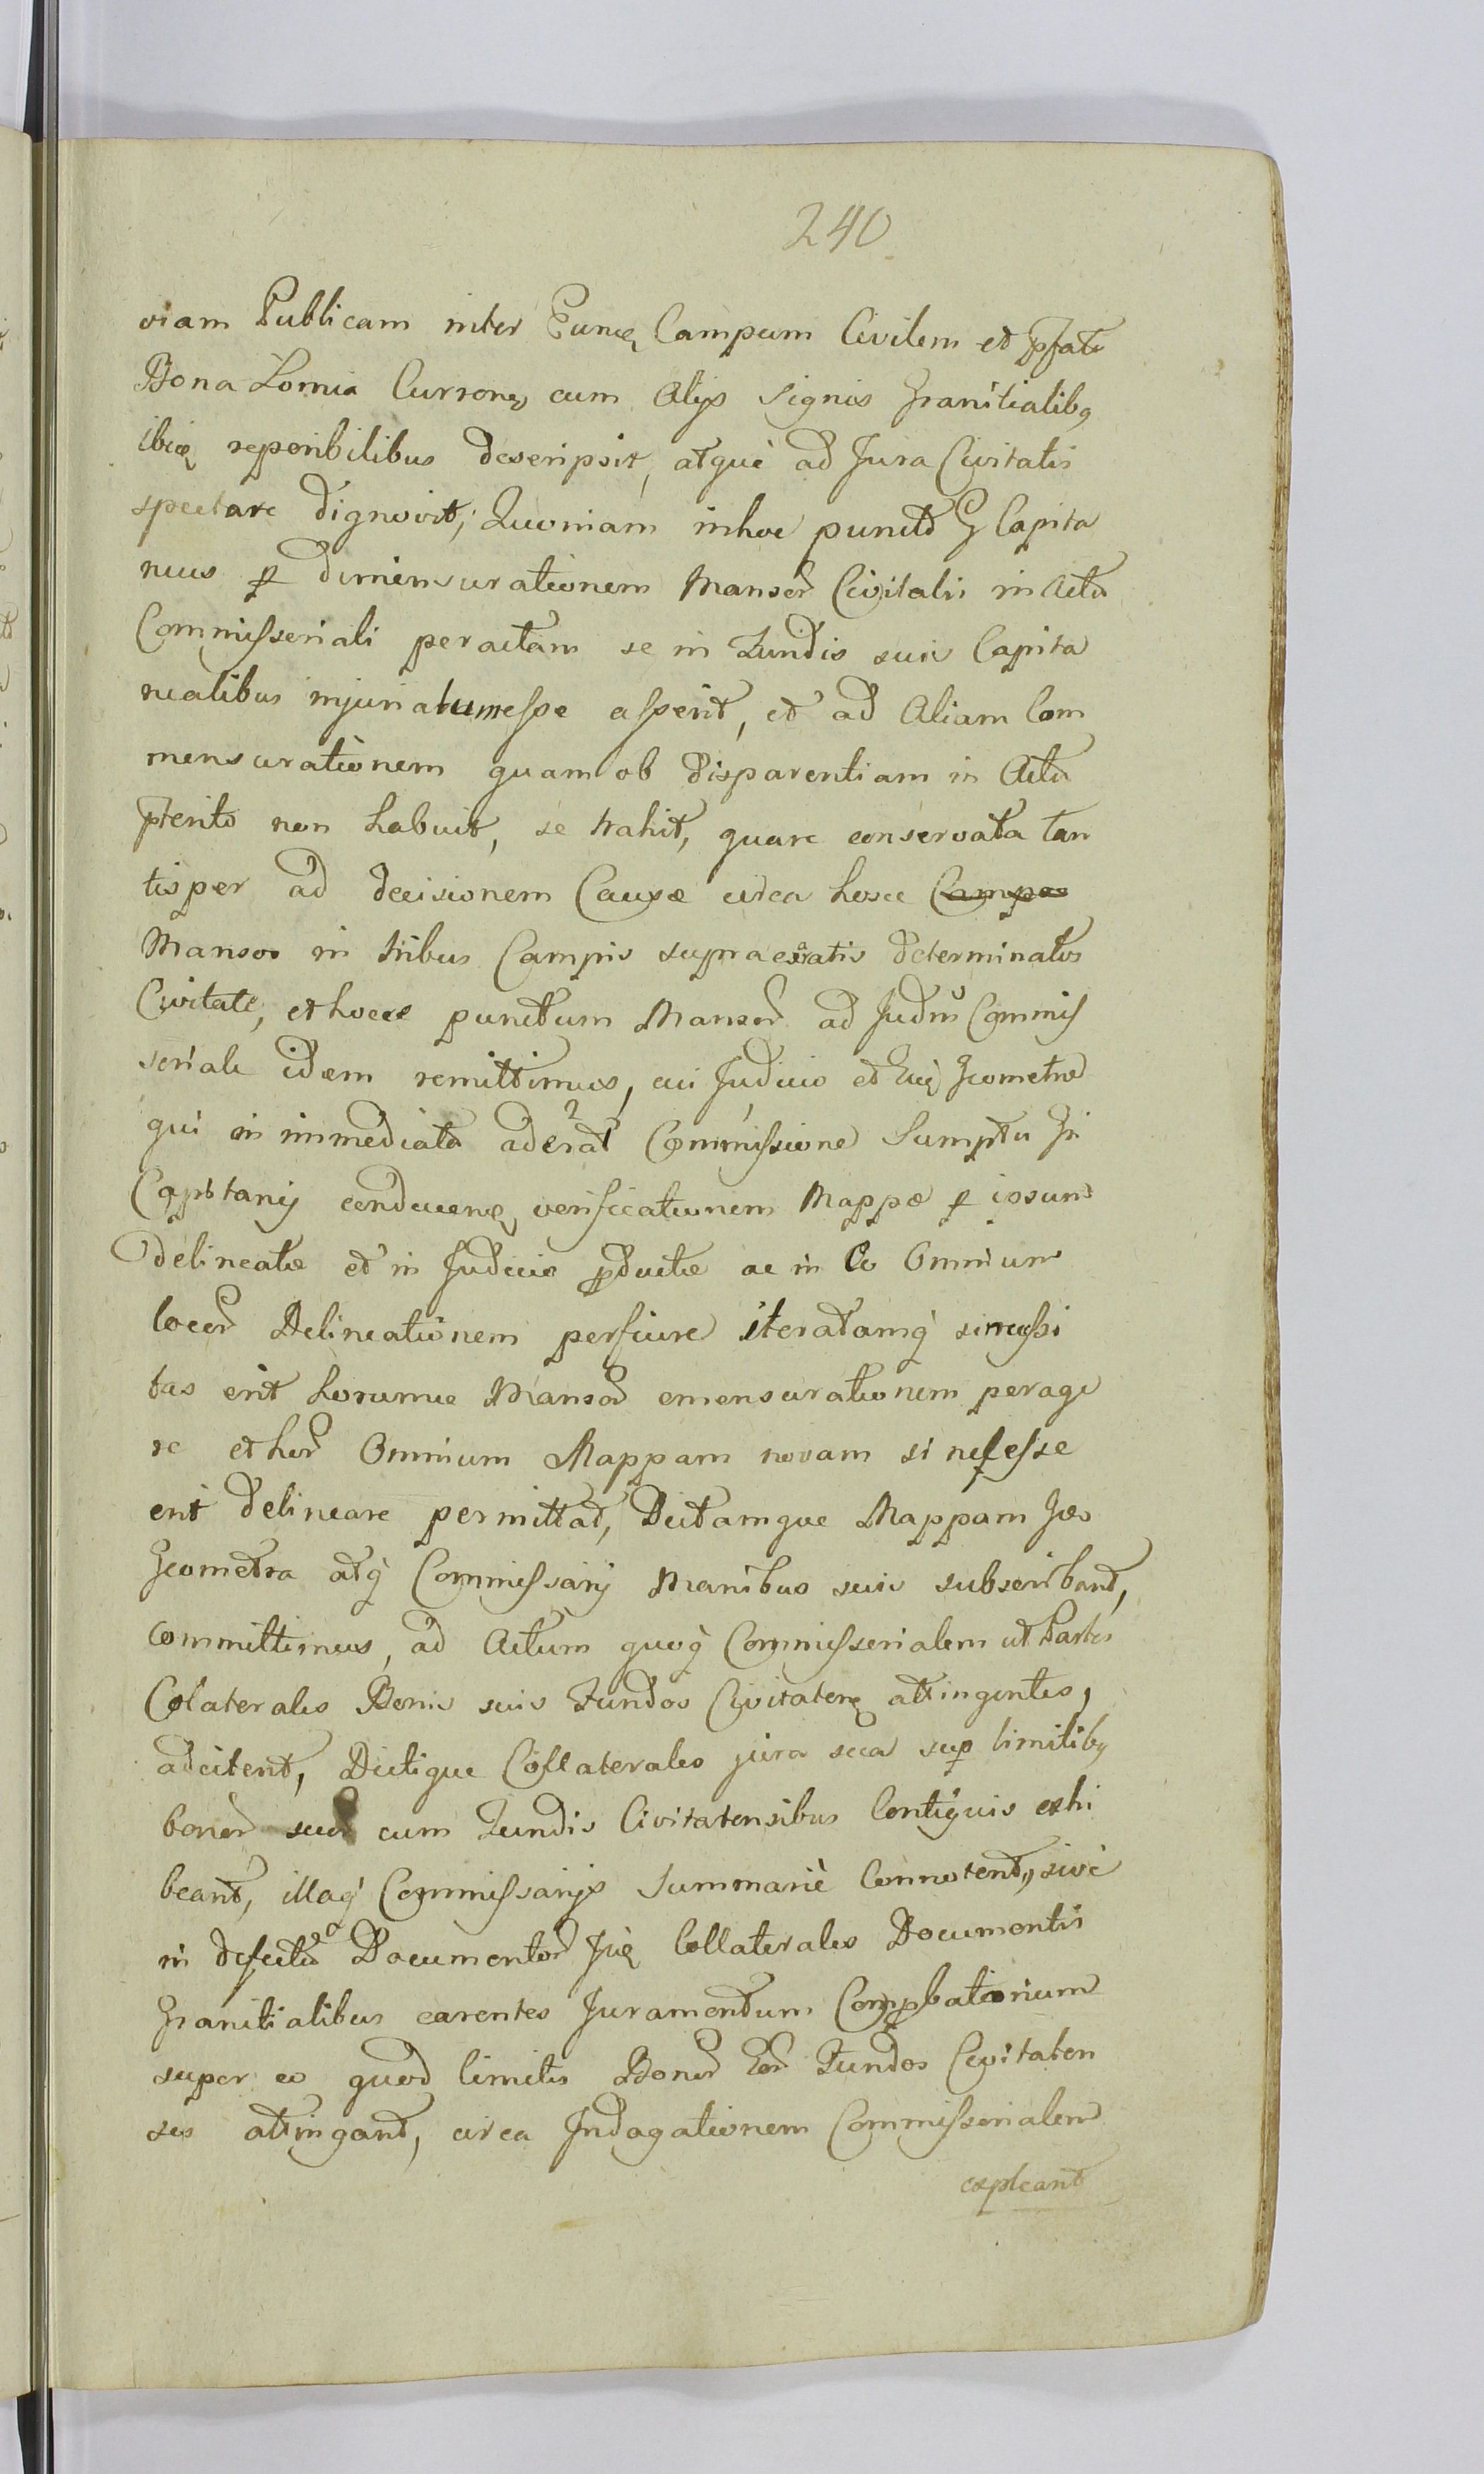 240
viam Publicam inter Eundę Campum Civilem et pfata
Bona Łomia Currenę cum Alijs signis Granitialibq
ibidę reperibilibus descripsit, atquè ad Jura Civitatis
spectare dignovit; Quoniam inhoc puncto G Capita
neus p dimensurationem Mansor Civitatis in Actu
Commisseriali peractam se in Fundis suis Capita
nealibus injuriatumesse asserit, et ad Aliam Com
mensurationem quam ob disparentiam in Actu
pterito non habuit, se trahit, quare conservata tan
tisper ad decisionem Causæ circa hosce Campos
Mansos in tribus Campis supraexatis determinatos
Civitate, ethocce punctum Mansor ad Judm Commis
seriale idem remittimus, cui Judicio et Geometræ
qui in immediata aderat Commissione Sumptu
Capitanij conducenę, verificationem Mappæ p ipsum
delineatæ et in Judicio pductæ ac in Eo Omnium
locor Delineationem perficere iteratamq si necessi
tas erit horumce Mansor emensurationem perage
re et hor Omnium Mappam novam si necesse
erit delineare permittat, Dictamque Mappam
Geometra atq Commissarij Manibus suis subscribant,
committimus, ad Actum quoq Commisserialem ut Partes
Colaterales Bonis suis Fundos Civitatenę attingentes,
adcitent, Dictique Collaterales jura sua sup limitibq
bonor suor cum Fundis Civitatensibus Contiguis exhi
beant, illaq Commissarijs Summariè Connotent, sivè
in defectu Documentor Collaterales Documentis
Granitialibus carentes Juramentum Compbatorium
super eo quod limites Bonor Eor Fundos Civitaten
ses attingant, circa Indagationem Commisserialem
expleant